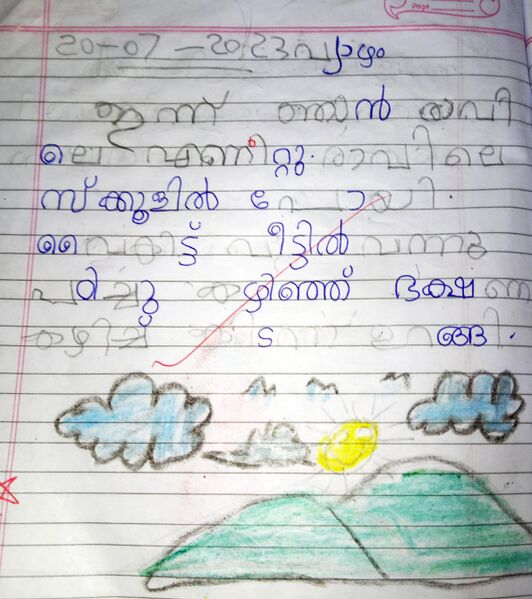 Page
20-07-2023 വ്യാഴം
ഇന്ന് ഞാൻ രാവി
ലെ എണീറ്റു. രാവിലെ
സ്ക്കൂളിൽ പോയി.
വൈകിട്ട് വീട്ടിൽ വന്നു
പഠിച്ചു കഴിഞ്ഞ് ഭക്ഷണ
കഴിച്ച് കിടന്ന് ഉറങ്ങി.